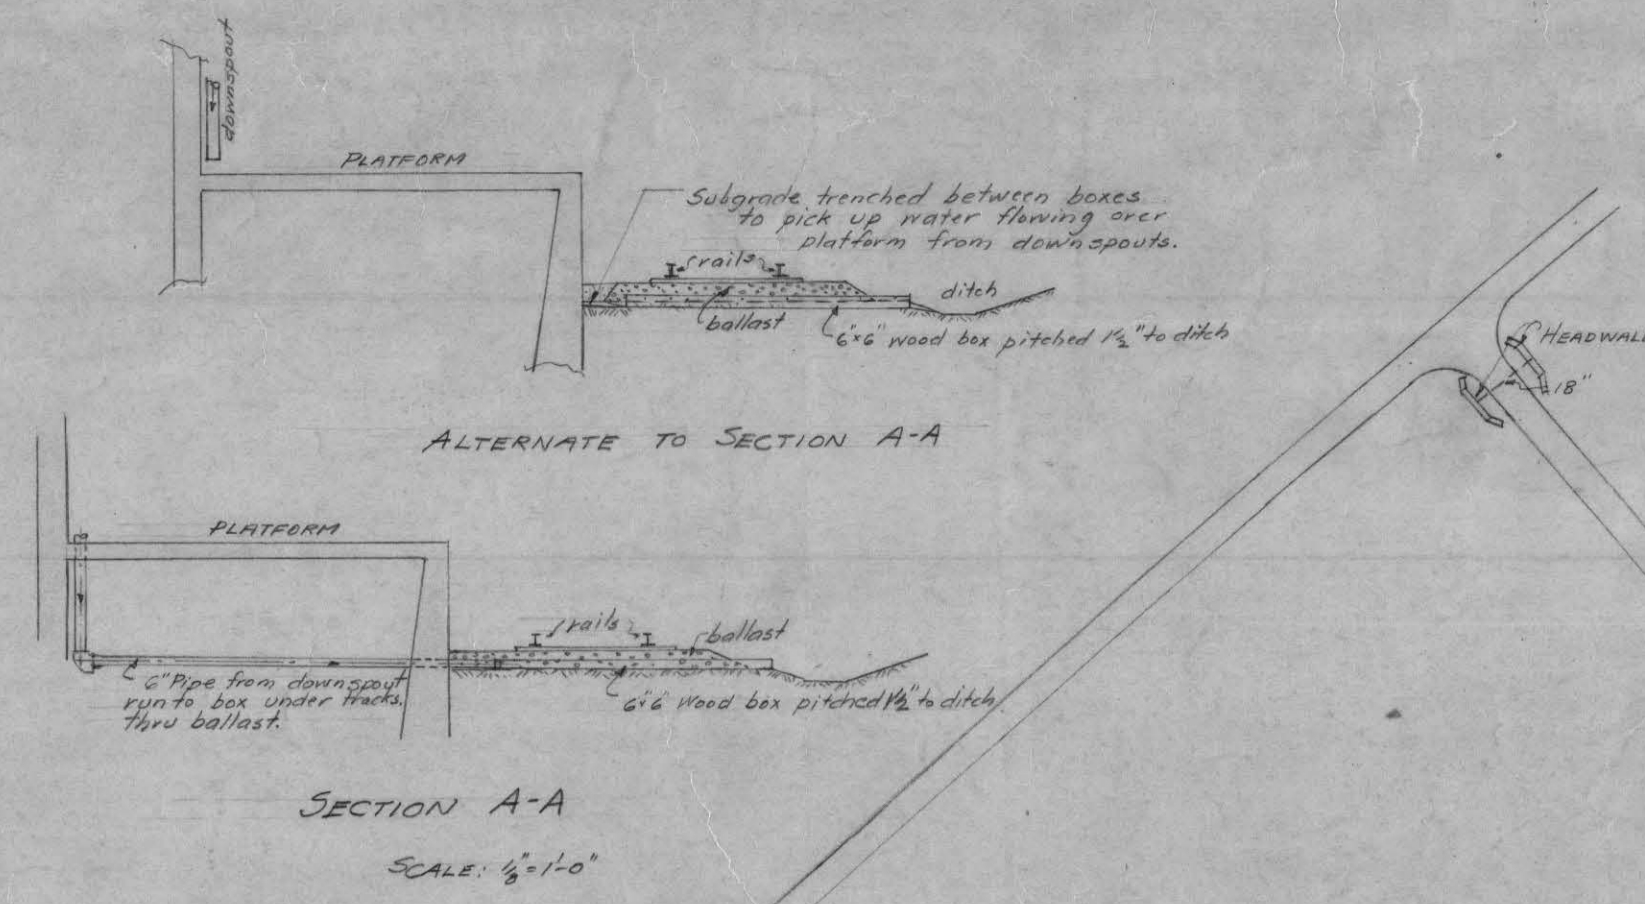 downspout
PLATFORM
Subgrade trenched between boxes
to pick up water flowing over
platform from downspouts.
rails
ditch
ballast
6"x6" wood box pitched 1½" to ditch
HEADWALL
18"
ALTERNATE TO SECTION A-A
PLATFORM
rails
ballast
6"Pipe from downspout
run to box under tracks.
thru ballast.
6"x6" Wood box pitched 1½" to ditch
SECTION A-A
SCALE: ⅛"=1'-0"